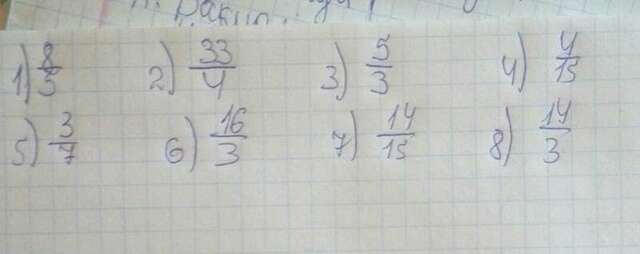 1) 8/5 2) 33/4 3) 5/3 4) 4/15
5) 3/7 6) 16/3 7) 14/15 8) 14/3